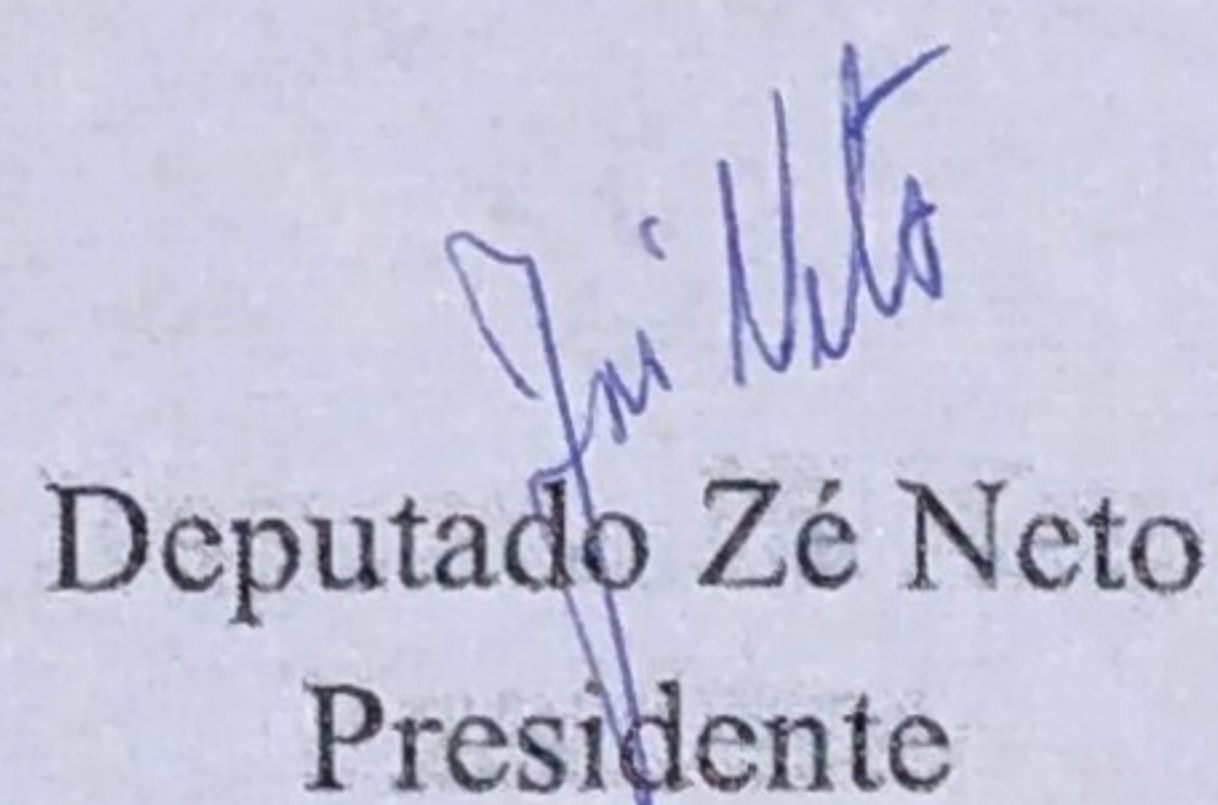 Zé Neto
Deputado Zé Neto
Presidente